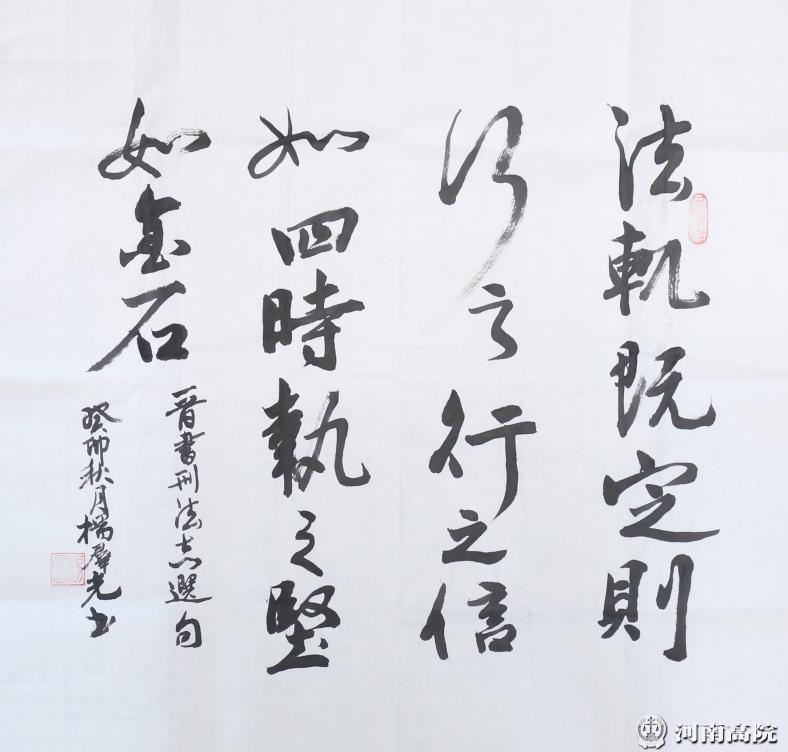 法軌既定則
行之行之信
如四時執之堅
如金石
晋書刑法志選句
癸卯秋月楊羣光书
河南高院